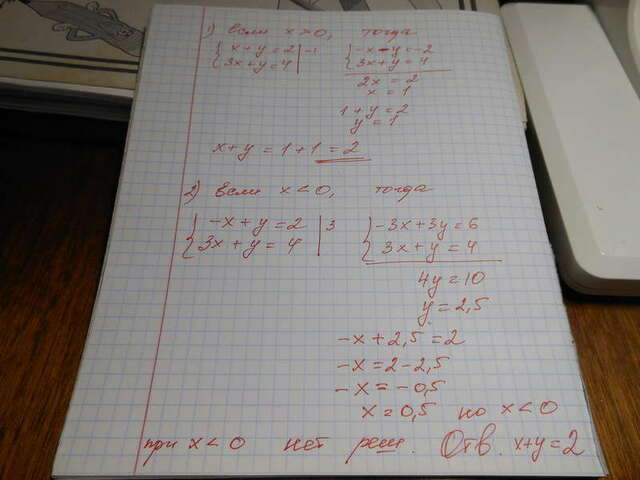 1) если x > 0, тогда
{ x + y = 2 | -1 { -x - y = -2
{ 3x + y = 4 { 3x + y = 4
2x = 2
x = 1
1 + y = 2
y = 1
x + y = 1 + 1 = 2
2) если x < 0, тогда
{ -x + y = 2 | 3 { -3x + 3y = 6
{ 3x + y = 4 { 3x + y = 4
4y = 10
y = 2,5
-x + 2,5 = 2
-x = 2 - 2,5
-x = -0,5
x = 0,5 но x < 0
при x < 0 нет реш. Отв. x+y = 2